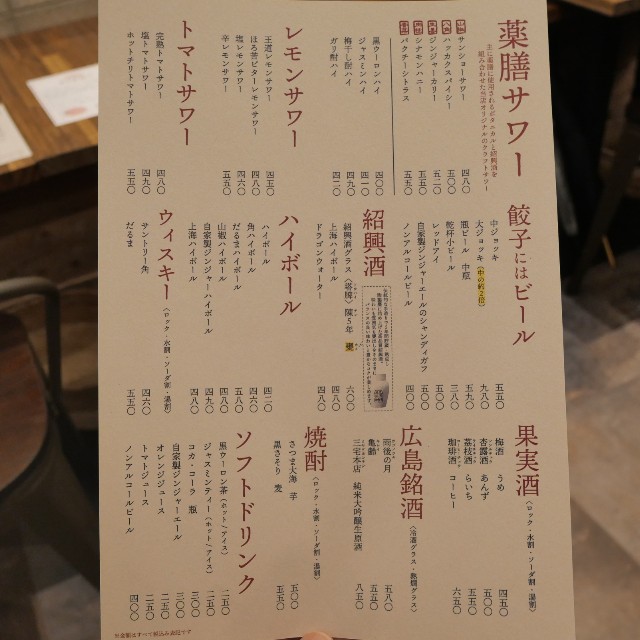 薬膳サワー
主に薬膳に使用されるボタニカルと紹興酒を
組み合わせた当店オリジナルのクラフトサワー
サンショーサワー 四八〇
ハッカクスパイシー 五〇〇
ジンジャーカリー 五二〇
シナモンハニー 五五〇
パクチーシトラス 五五〇
黒ウーロンハイ 四〇〇
ジャスミンハイ 四一〇
梅干し酎ハイ 四九〇
ガリ酎ハイ 四二〇
レモンサワー
王道レモンサワー 四五〇
ほろ苦ビターレモンサワー 四八〇
塩レモンサワー 四六〇
辛レモンサワー 五五〇
トマトサワー
完熟トマトサワー 四八〇
塩トマトサワー 四九〇
ホットチリトマトサワー 五五〇
餃子にはビール
中ジョッキ 五五〇
大ジョッキ（中の約2倍） 九八〇
瓶ビール 中瓶 五九〇
乾杯小ビール 三八〇
レッドアイ 五五〇
自家製ジンジャーエールのシャンディガフ 五〇〇
ノンアルコールビール 四〇〇
紹興酒
紹興酒グラス〈塔牌〉陳5年 甕 六〇〇
上海ハイボール 四八〇
ドラゴンウォーター 四八〇
ハイボール
ハイボール 四二〇
角ハイボール 四六〇
だるまハイボール 五五〇
山椒ハイボール 四八〇
自家製ジンジャーハイボール 五五〇
上海ハイボール 四八〇
ウィスキー〈ロック・水割・ソーダ割・湯割〉
サントリー角 四六〇
だるま 五五〇
果実酒〈ロック・水割・ソーダ割・湯割〉
梅酒 うめ 四五〇
杏露酒 あんず 五〇〇
茘枝酒 らいち 五五〇
珈琲酒 コーヒー 六五〇
広島銘酒〈冷酒グラス・熱燗グラス〉
雨後の月 五八〇
亀齢 五五〇
三宅本店 純米大吟醸生原酒 八五〇
焼酎〈ロック・水割・ソーダ割・湯割〉
さつま大海 芋 五〇〇
黒さそり 麦 五五〇
ソフトドリンク
黒ウーロン茶〈ホット/アイス〉 二五〇
ジャスミンティー〈ホット/アイス〉 二五〇
コカ・コーラ 瓶 三〇〇
自家製ジンジャーエール 三〇〇
オレンジジュース 二五〇
トマトジュース 二五〇
ノンアルコールビール 四〇〇
※金額はすべて税込み表記です